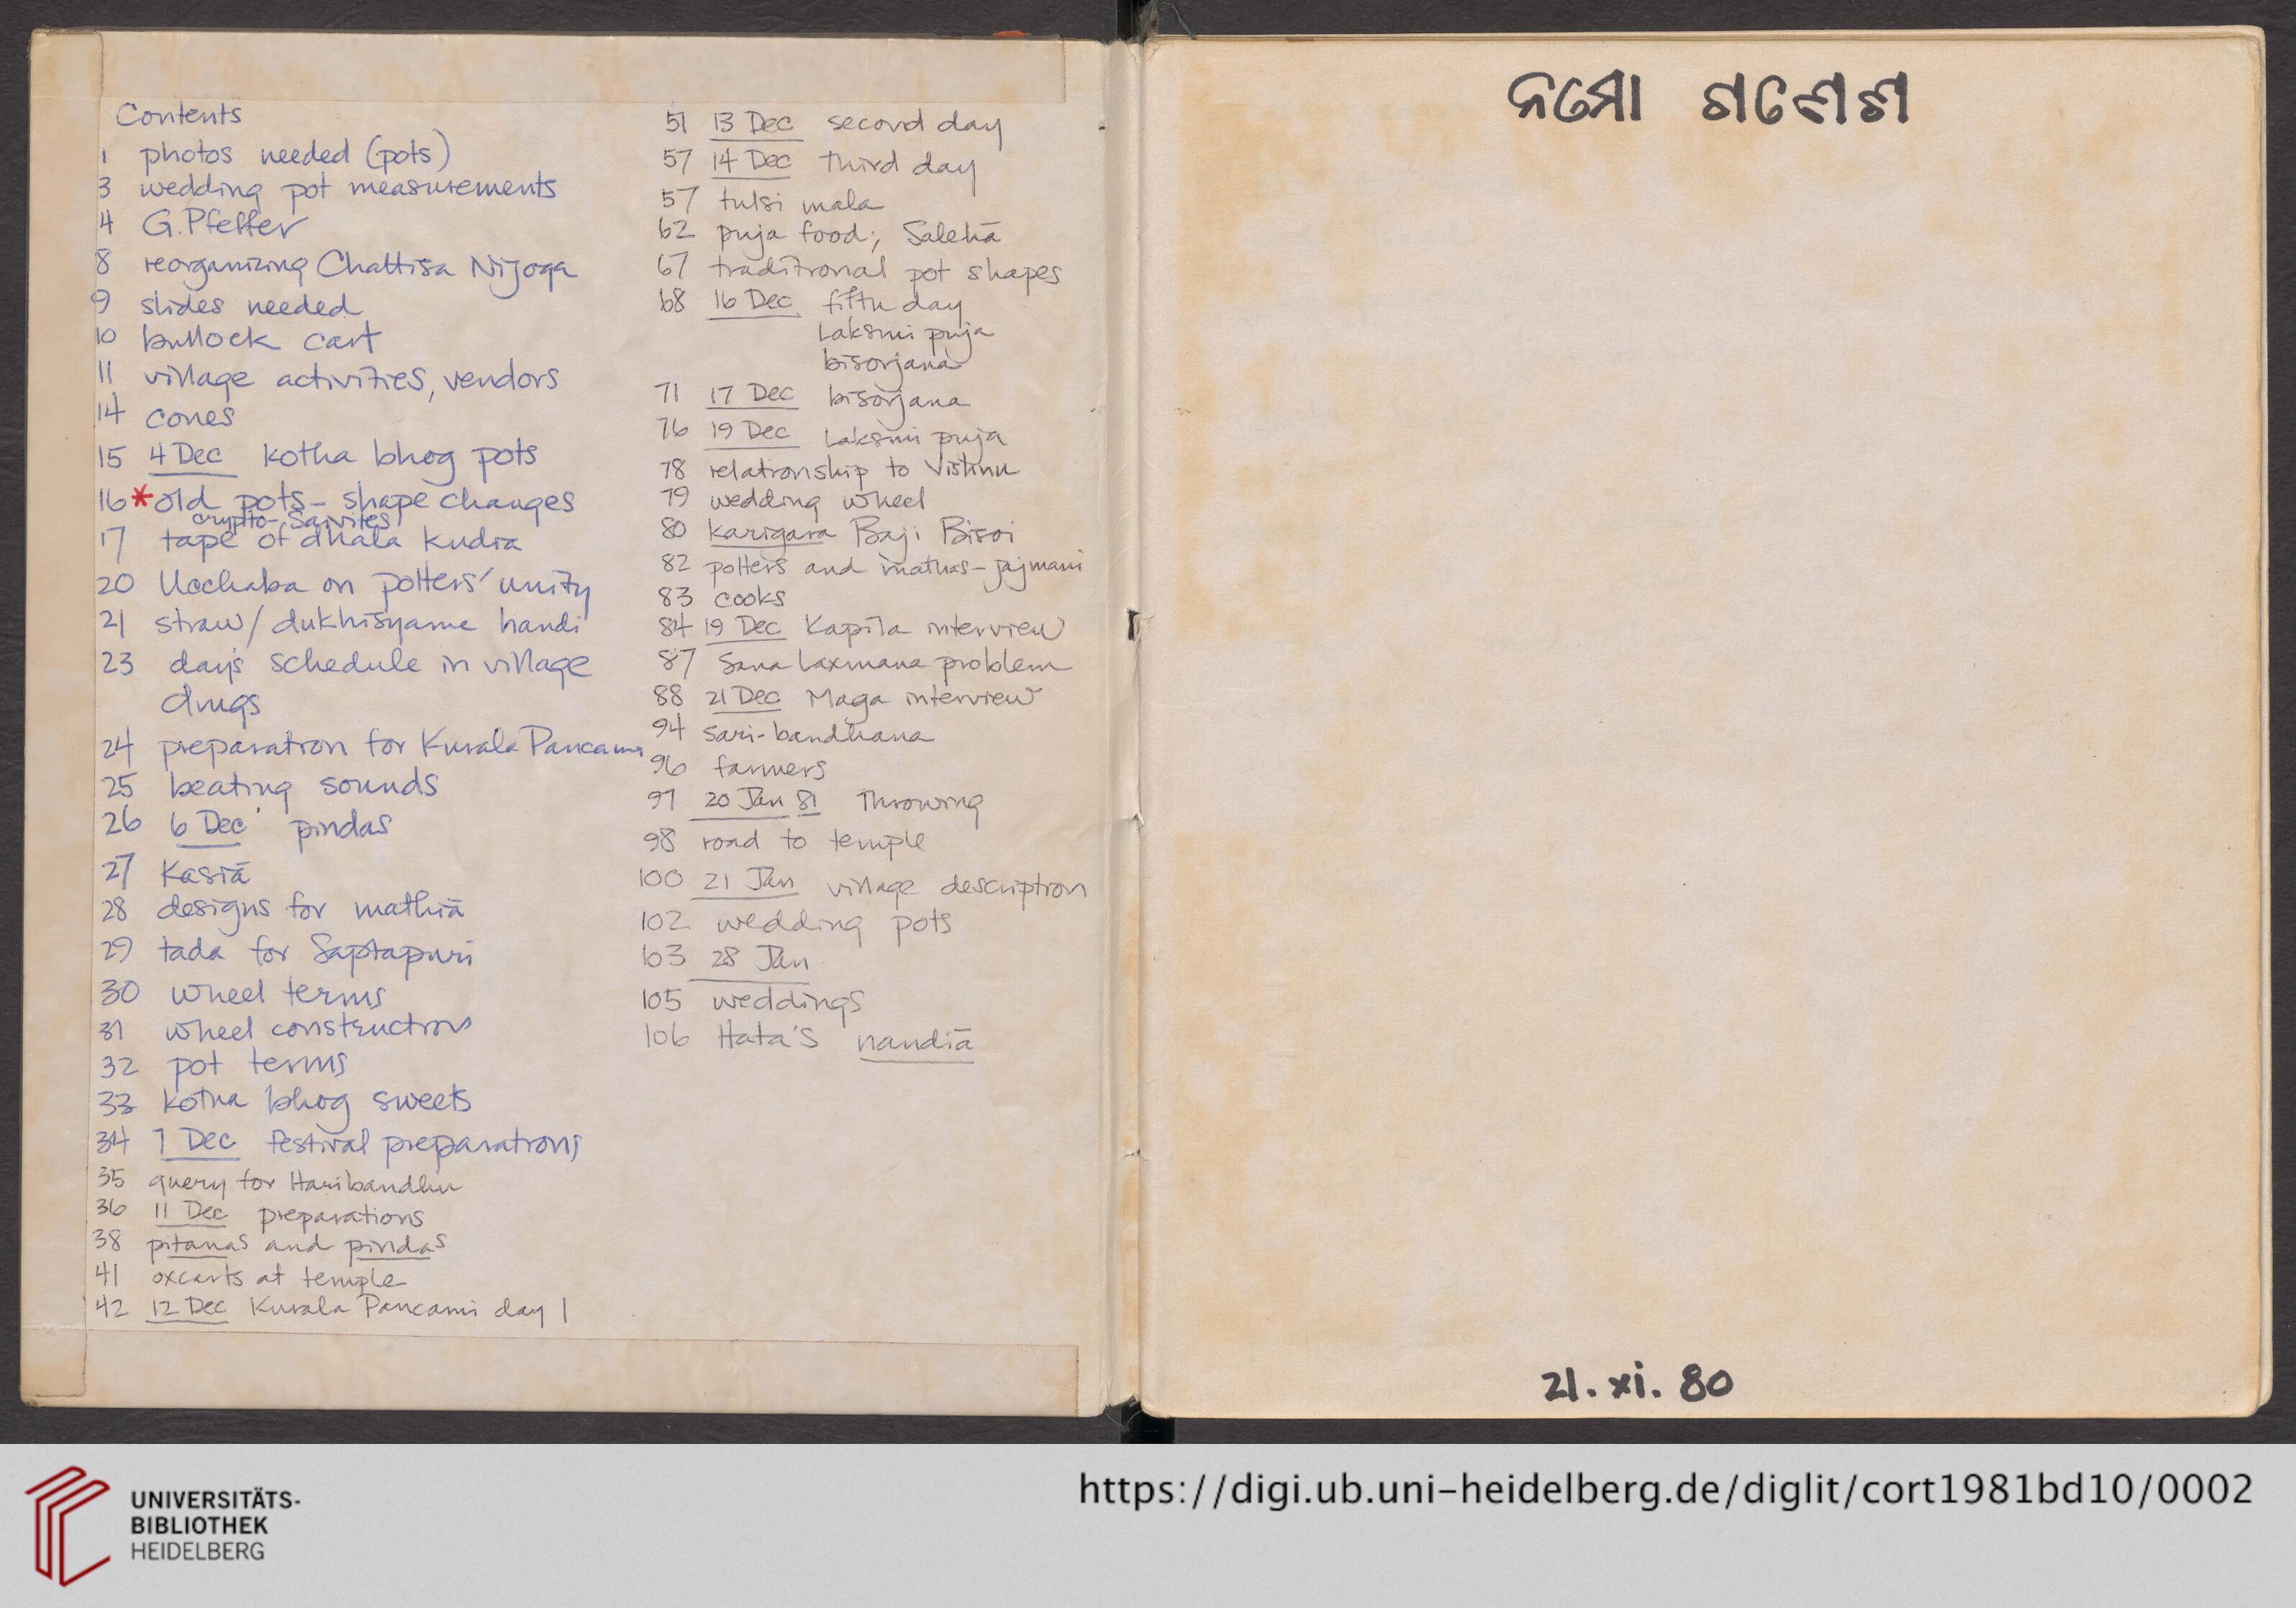 Contents
1 photos needed (pots)
3 wedding pot measurements
4 G. Pfeffer
8 reorganizing Chattisa Nijoga
9 slides needed
10 bullock cart
11 village activities, vendors
14 cones
15 4 Dec kotha bhog pots
16 * old pots - shape changes
crypto-Saivites
17 tape of dhala kudia
20 Ucchaba on potters' unity
21 straw / dukhisyame handi
23 day's schedule in village
drugs
24 preparation for Kurala Pancami
25 beating sounds
26 6 Dec pindas
27 Kasiā
28 designs for mathiā
29 tada for Saptapuri
30 wheel terms
31 wheel construction
32 pot terms
33 kotha bhog sweets
34 7 Dec festival preparations
35 query for Haribandhu
36 11 Dec preparations
38 pitanas and pindas
41 oxcarts at temple
42 12 Dec Kurala Pancami day 1
51 13 Dec second day
57 14 Dec third day
57 tulsi mala
62 puja food; Salehā
67 traditional pot shapes
68 16 Dec fifth day
Laksmi puja
bisorjana
71 17 Dec bisorjana
76 19 Dec Laksmi puja
78 relationship to Vishnu
79 wedding wheel
80 karigara Baji Bisoi
82 potters and mathas - jajmani
83 cooks
84 19 Dec Kapila interview
87 Sana Laxmana problem
88 21 Dec Maga interview
94 sari-bandhana
96 farmers
97 20 Jan 81 Throwing
98 road to temple
100 21 Jan village description
102 wedding pots
103 28 Jan
105 weddings
106 Hata's nandiā
ନମୋ ଗଣେଶ
21. xi. 80
UNIVERSITÄTS-
BIBLIOTHEK
HEIDELBERG
https://digi.ub.uni-heidelberg.de/diglit/cort1981bd10/0002